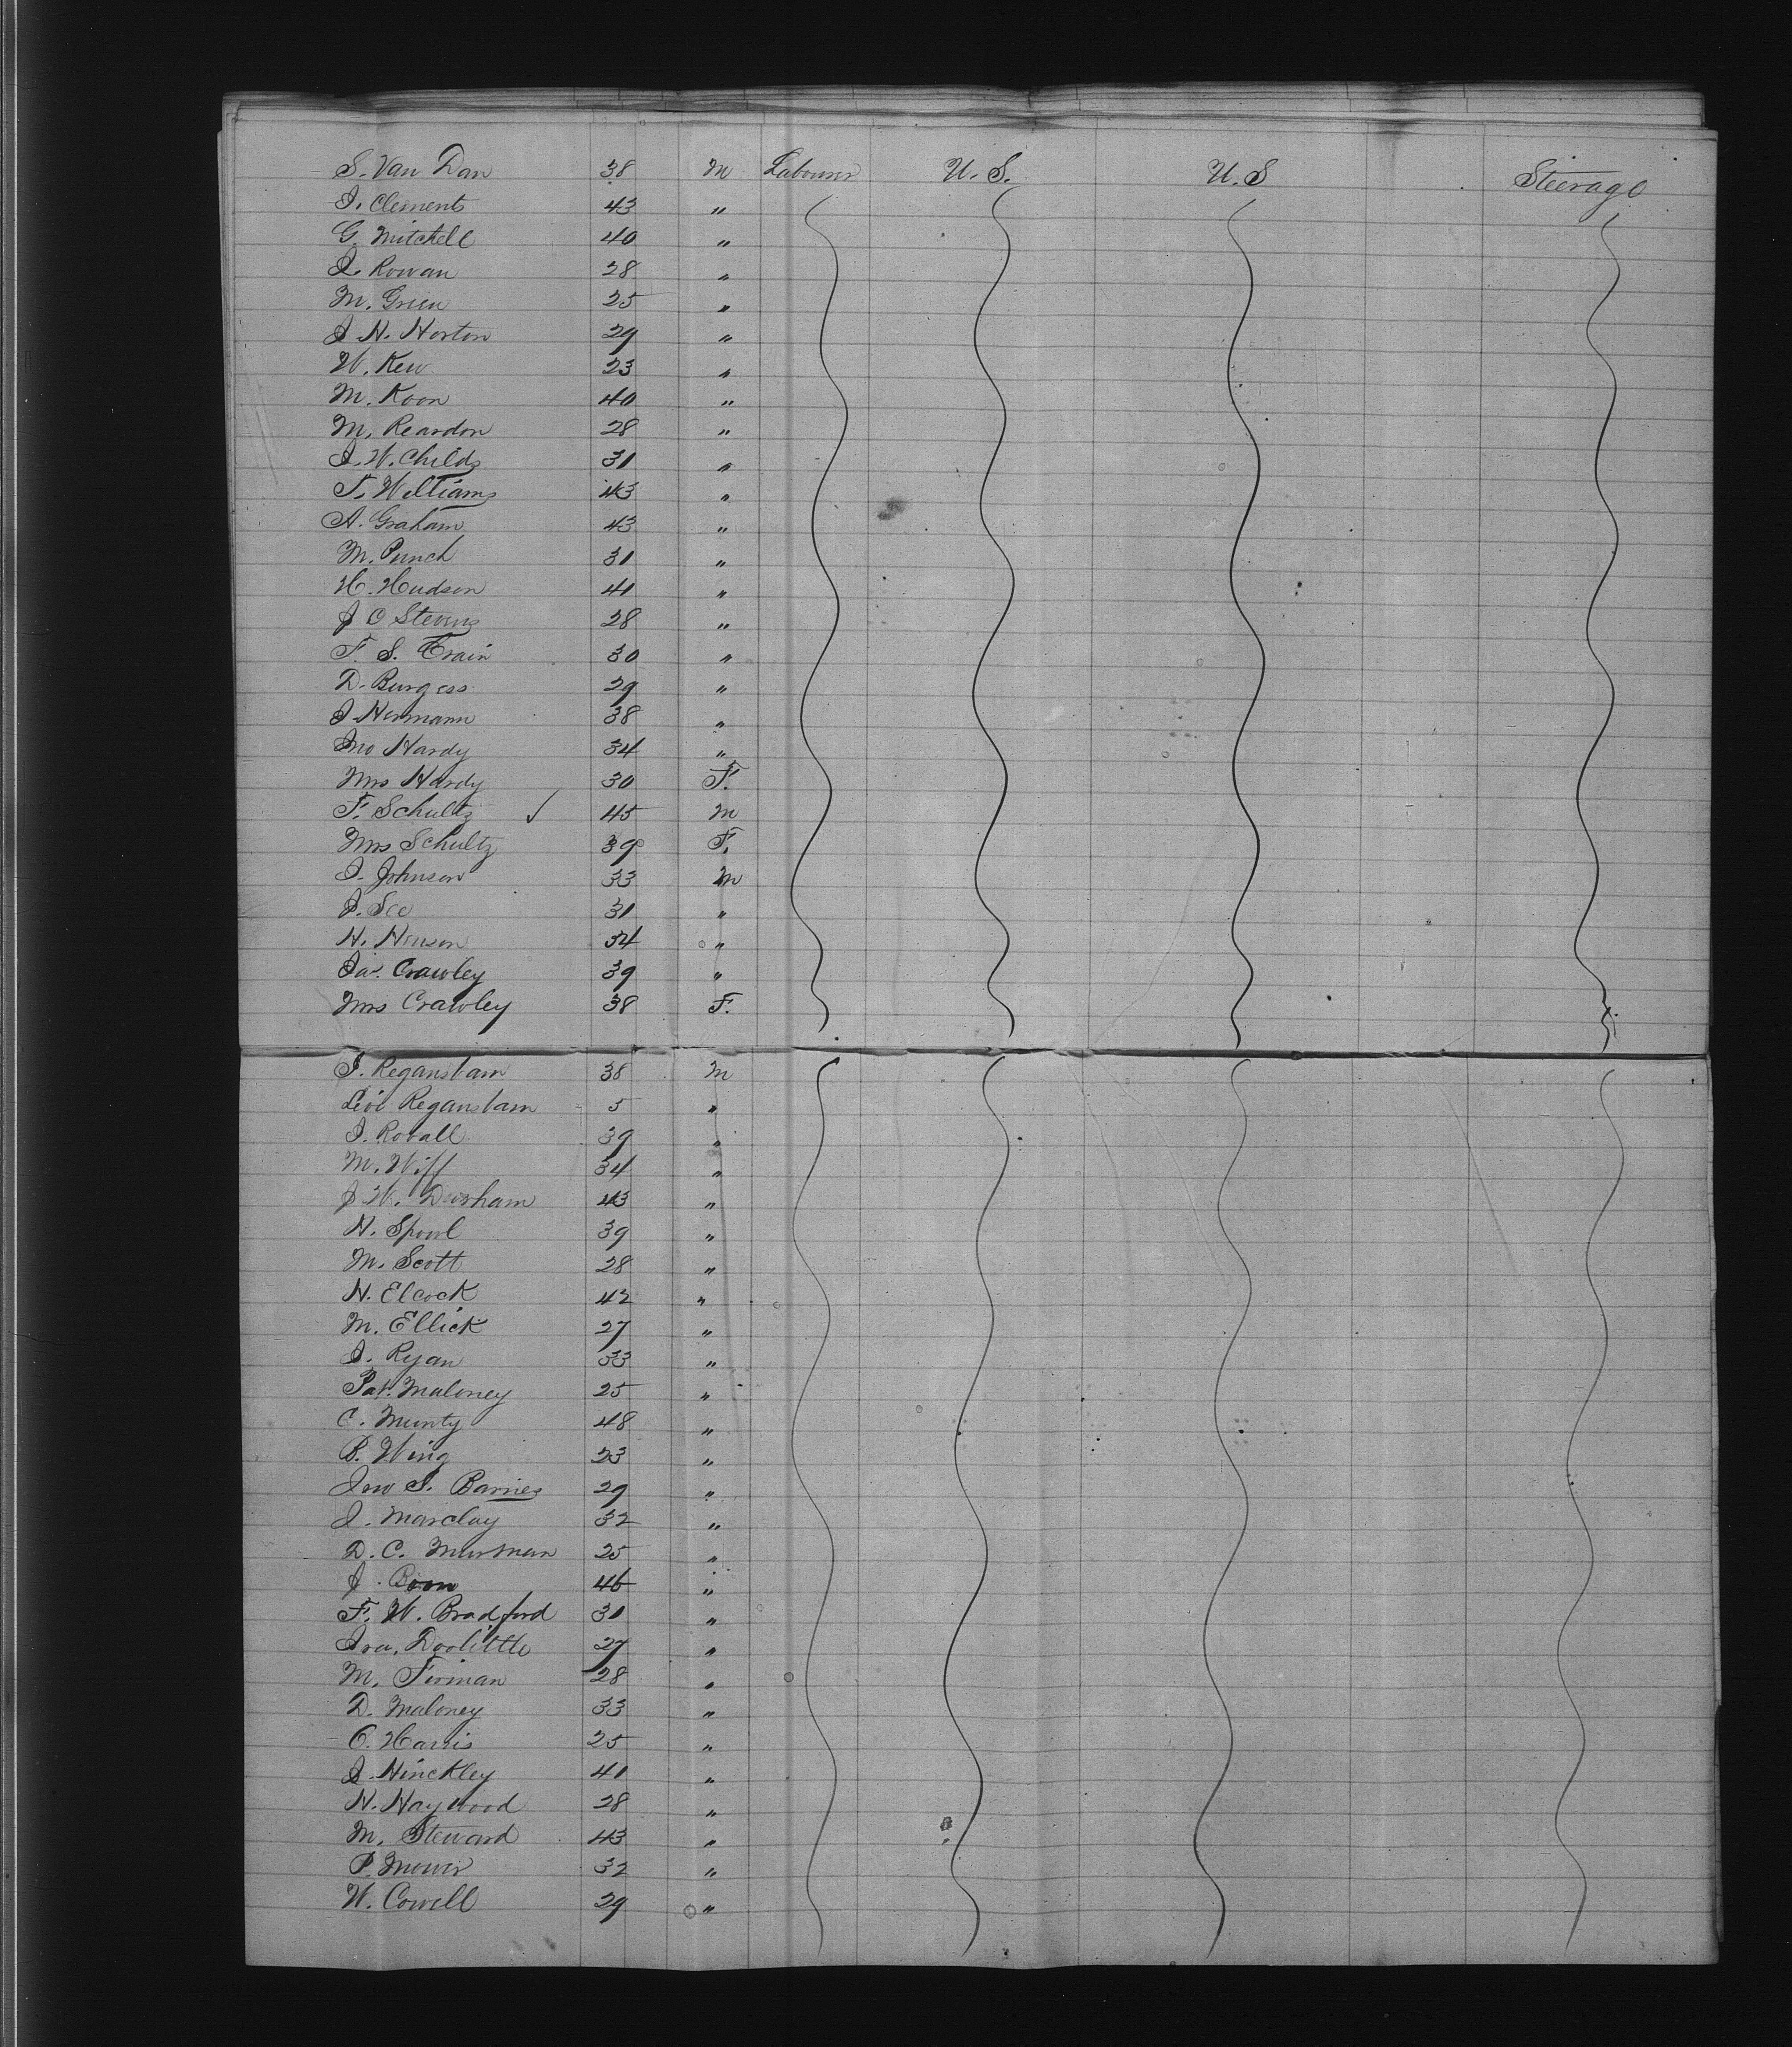 S. Van Dan 38 M Labourer U. S. U. S Steerage
J. Clements 43 "
G. Mitchell 40 "
J. Rowan 28 "
M. Green 25 "
J H. Horton 29 "
W. Kew 23 "
M. Koon 40 "
M. Reardon 28 "
J. W. Childs 31 "
T. Williams 43 "
A. Graham 43 "
M. Punch 31 "
H. Hudson 41 "
J O Stevens 28 "
F. S. Train 30 "
D. Burgess 29 "
J Hermann 38 "
Jno Hardy 34 "
Mrs Hardy 30 F.
F. Schultz ✓ 45 M
Mrs Schultz 39 F.
J. Johnson 33 M
J. See 31 "
H. Henson 34 "
Jas. Crawley 39 "
Mrs Crawley 38 F.
J. Reganstam 38 M
Levi Reganstam 5 "
J. Rovall 39 "
M. Wiff 34 "
J W. Dursham 43 "
H. Spowl 39 "
M. Scott 28 "
H. Elcock 42 "
M. Ellick 27 "
J. Ryan 33 "
Pat. Maloney 25 "
C. Munty 48 "
B. Wing 23 "
Jno S. Barnes 29 "
J. Marclay 32 "
D. C. Murman 25 "
J. Boon 46 "
F. W. Bradford 31 "
Ira. Doolittle 27 "
M. Firman 28 "
D. Maloney 33 "
O. Harris 25 "
J. Hinckley 41 "
H. Haywood 28 "
M. Steward 43 "
P. Mower 32 "
W. Cowell 29 "